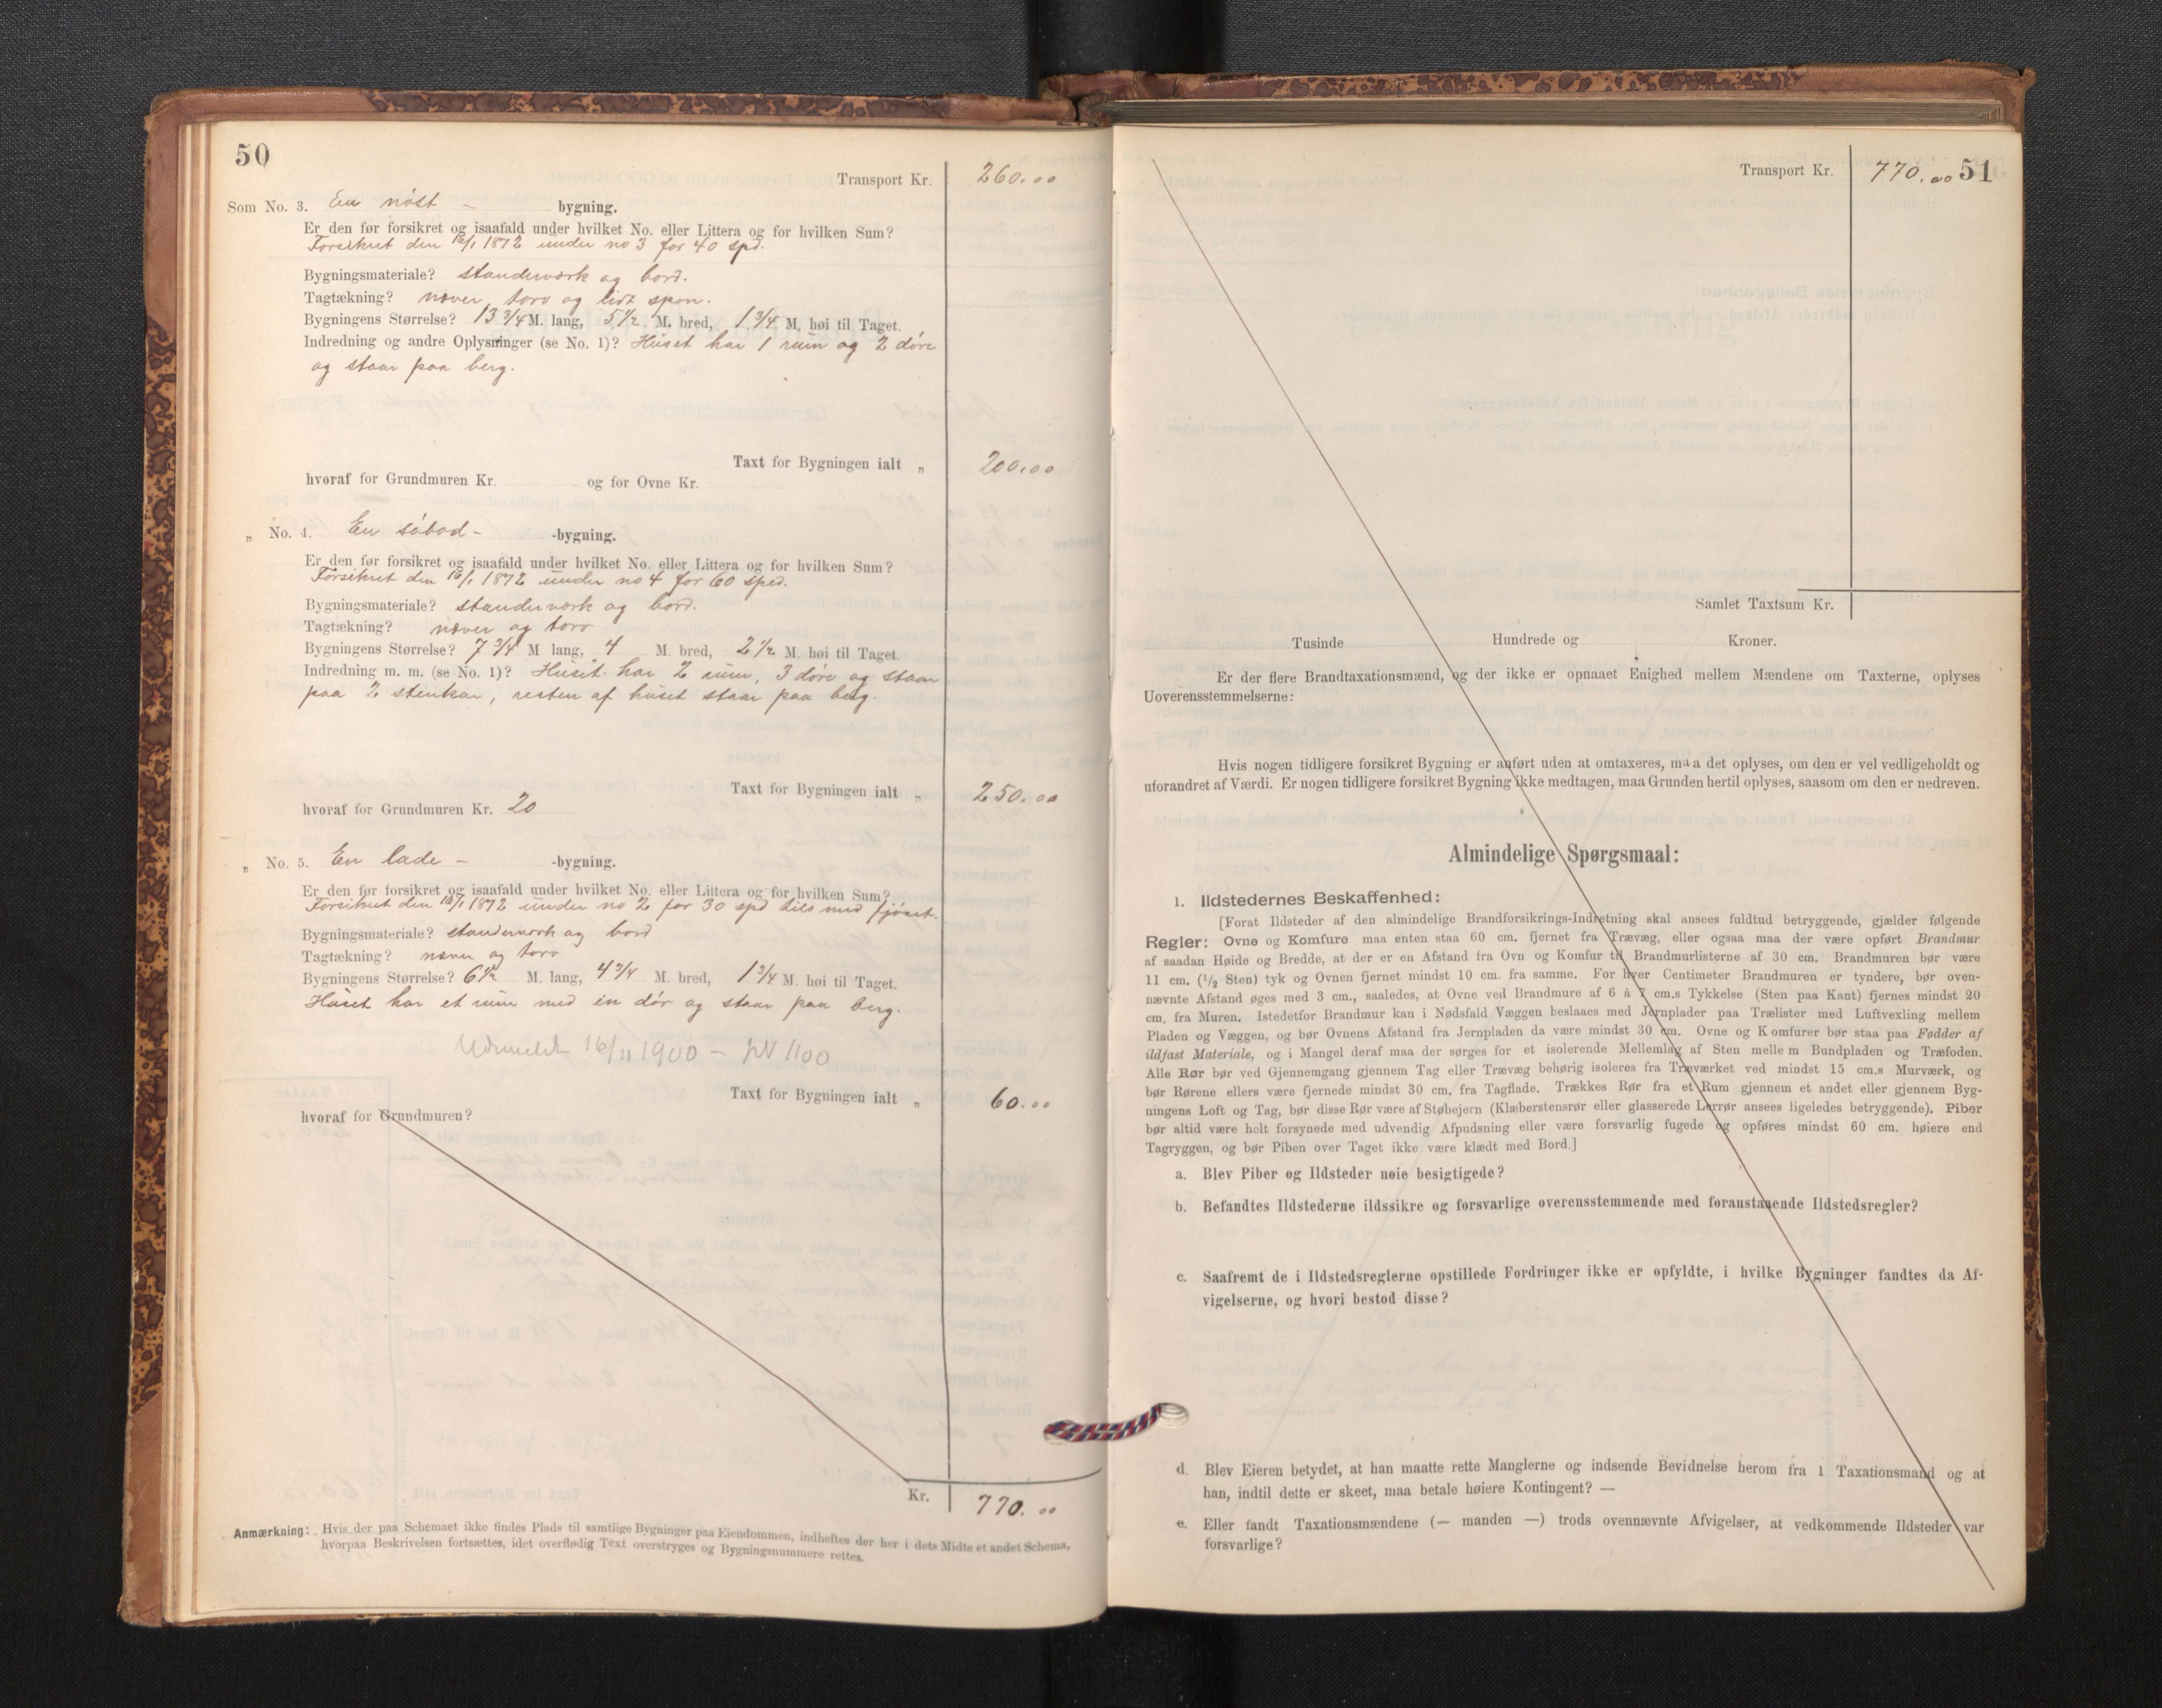 50
Transport Kr. 260.00
Som No. 3. En nöst - bygning.
Er den før forsikret og isaafald under hvilket No. eller Littera og for hvilken Sum?
Forsikret den 16/1 1872 under no 3 for 40 spd.
Bygningsmateriale? standerværk og bord.
Tagtækning? næver, torv og lidt spon.
Bygningens Størrelse? 13 3/4 M. lang, 5 1/2 M. bred, 1 3/4 M. høi til Taget.
Indredning og andre Oplysninger (se No. 1)? Huset har 1 rum og 2 döre
og staar paa berg.
Taxt for Bygningen ialt „ 200.00
hvoraf for Grundmuren Kr. og for Ovne Kr.
„ No. 4. En söbod - -bygning.
Er den før forsikret og isaafald under hvilket No. eller Littera og for hvilken Sum?
Forsikret den 16/1 1872 under no 4 for 60 sped.
Bygningsmateriale? standerværk og bord.
Tagtækning? næver og torv
Bygningens Størrelse? 7 3/4 M. lang, 4 M. bred, 2 1/2 M. høi til Taget.
Indredning m. m. (se No. 1)? Huset har 2 rum, 3 döre og staar
paa 2 stenkar, resten af huset staar paa berg.
Taxt for Bygningen ialt „ 250.00
hvoraf for Grundmuren Kr. 20
„ No. 5. En lade - -bygning.
Er den før forsikret og isaafald under hvilket No. eller Littera og for hvilken Sum?
Forsikret den 16/1 1872 under no 2 for 30 spd tils med fjöset.
Bygningsmateriale? standerværk og bord
Tagtækning? næver og torv
Bygningens Størrelse? 6 1/2 M. lang, 4 3/4 M. bred, 1 3/4 M. høi til Taget.
Huset har et rum med en dör og staar paa berg.
Udmeldt 16/11 1900 - 1100
Taxt for Bygningen ialt „ 60.00
hvoraf for Grundmuren?
Kr. 770.00
Anmærkning: Hvis der paa Schemaet ikke findes Plads til samtlige Bygninger paa Eiendommen, indheftes der her i dets Midte et andet Schema,
hvorpaa Beskrivelsen fortsættes, idet overflødig Text overstryges og Bygningsnummere rettes.
Transport Kr. 770.00 51
Samlet Taxtsum Kr.
Tusinde Hundrede og Kroner.
Er der flere Brandtaxationsmænd, og der ikke er opnaaet Enighed mellem Mændene om Taxterne, oplyses
Uoverensstemmelserne:
Hvis nogen tidligere forsikret Bygning er anført uden at omtaxeres, maa det oplyses, om den er vel vedligeholdt og
uforandret af Værdi. Er nogen tidligere forsikret Bygning ikke medtagen, maa Grunden hertil oplyses, saasom om den er nedreven.
Almindelige Spørgsmaal:
1. Ildstedernes Beskaffenhed:
[Forat Ildsteder af den almindelige Brandforsikrings-Indretning skal ansees fuldtud betryggende, gjælder følgende
Regler: Ovne og Komfure maa enten staa 60 cm. fjernet fra Trævæg, eller ogsaa maa der være opført Brandmur
af saadan Høide og Bredde, at der er en Afstand fra Ovn og Komfur til Brandmurlisterne af 30 cm. Brandmuren bør være
11 cm. (1/2 Sten) tyk og Ovnen fjernet mindst 10 cm. fra samme. For hver Centimeter Brandmuren er tyndere, bør oven-
nævnte Afstand øges med 3 cm., saaledes, at Ovne ved Brandmure af 6 á 7 cm.s Tykkelse (Sten paa Kant) fjernes mindst 20
cm. fra Muren. Istedetfor Brandmur kan i Nødsfald Væggen beslaaes med Jernplader paa Trælister med Luftvexling mellem
Pladen og Væggen, og bør Ovnens Afstand fra Jernpladen da være mindst 30 cm. Ovne og Komfurer bør staa paa Fødder af
ildfast Materiale, og i Mangel deraf maa der sørges for et isolerende Mellemlag af Sten mellem Bundpladen og Træfoden.
Alle Rør bør ved Gjennemgang gjennem Tag eller Trævæg behørig isoleres fra Træværket ved mindst 15 cm.s Murværk, og
bør Rørene ellers være fjernede mindst 30 cm. fra Tagflade. Trækkes Rør fra et Rum gjennem et andet eller gjennem Byg-
ningens Loft og Tag, bør disse Rør være af Støbejern (Klæberstensrør eller glasserede Lerrør ansees ligeledes betryggende). Piber
bør altid være helt forsynede med udvendig Afpudsning eller være forsvarlig fugede og opføres mindst 60 cm. høiere end
Tagryggen, og bør Piben over Taget ikke være klædt med Bord.]
a. Blev Piber og Ildsteder nøie besigtigede?
b. Befandtes Ildstederne ildssikre og forsvarlige overensstemmende med foranstaaende Ildstedsregler?
c. Saafremt de i Ildstedsreglerne opstillede Fordringer ikke er opfyldte, i hvilke Bygninger fandtes da Af-
vigelserne, og hvori bestod disse?
d. Blev Eieren betydet, at han maatte rette Manglerne og indsende Bevidnelse herom fra 1 Taxationsmand og at
han, indtil dette er skeet, maa betale høiere Kontingent? —
e. Eller fandt Taxationsmændene (— manden —) trods ovennævnte Afvigelser, at vedkommende Ildsteder var
forsvarlige?